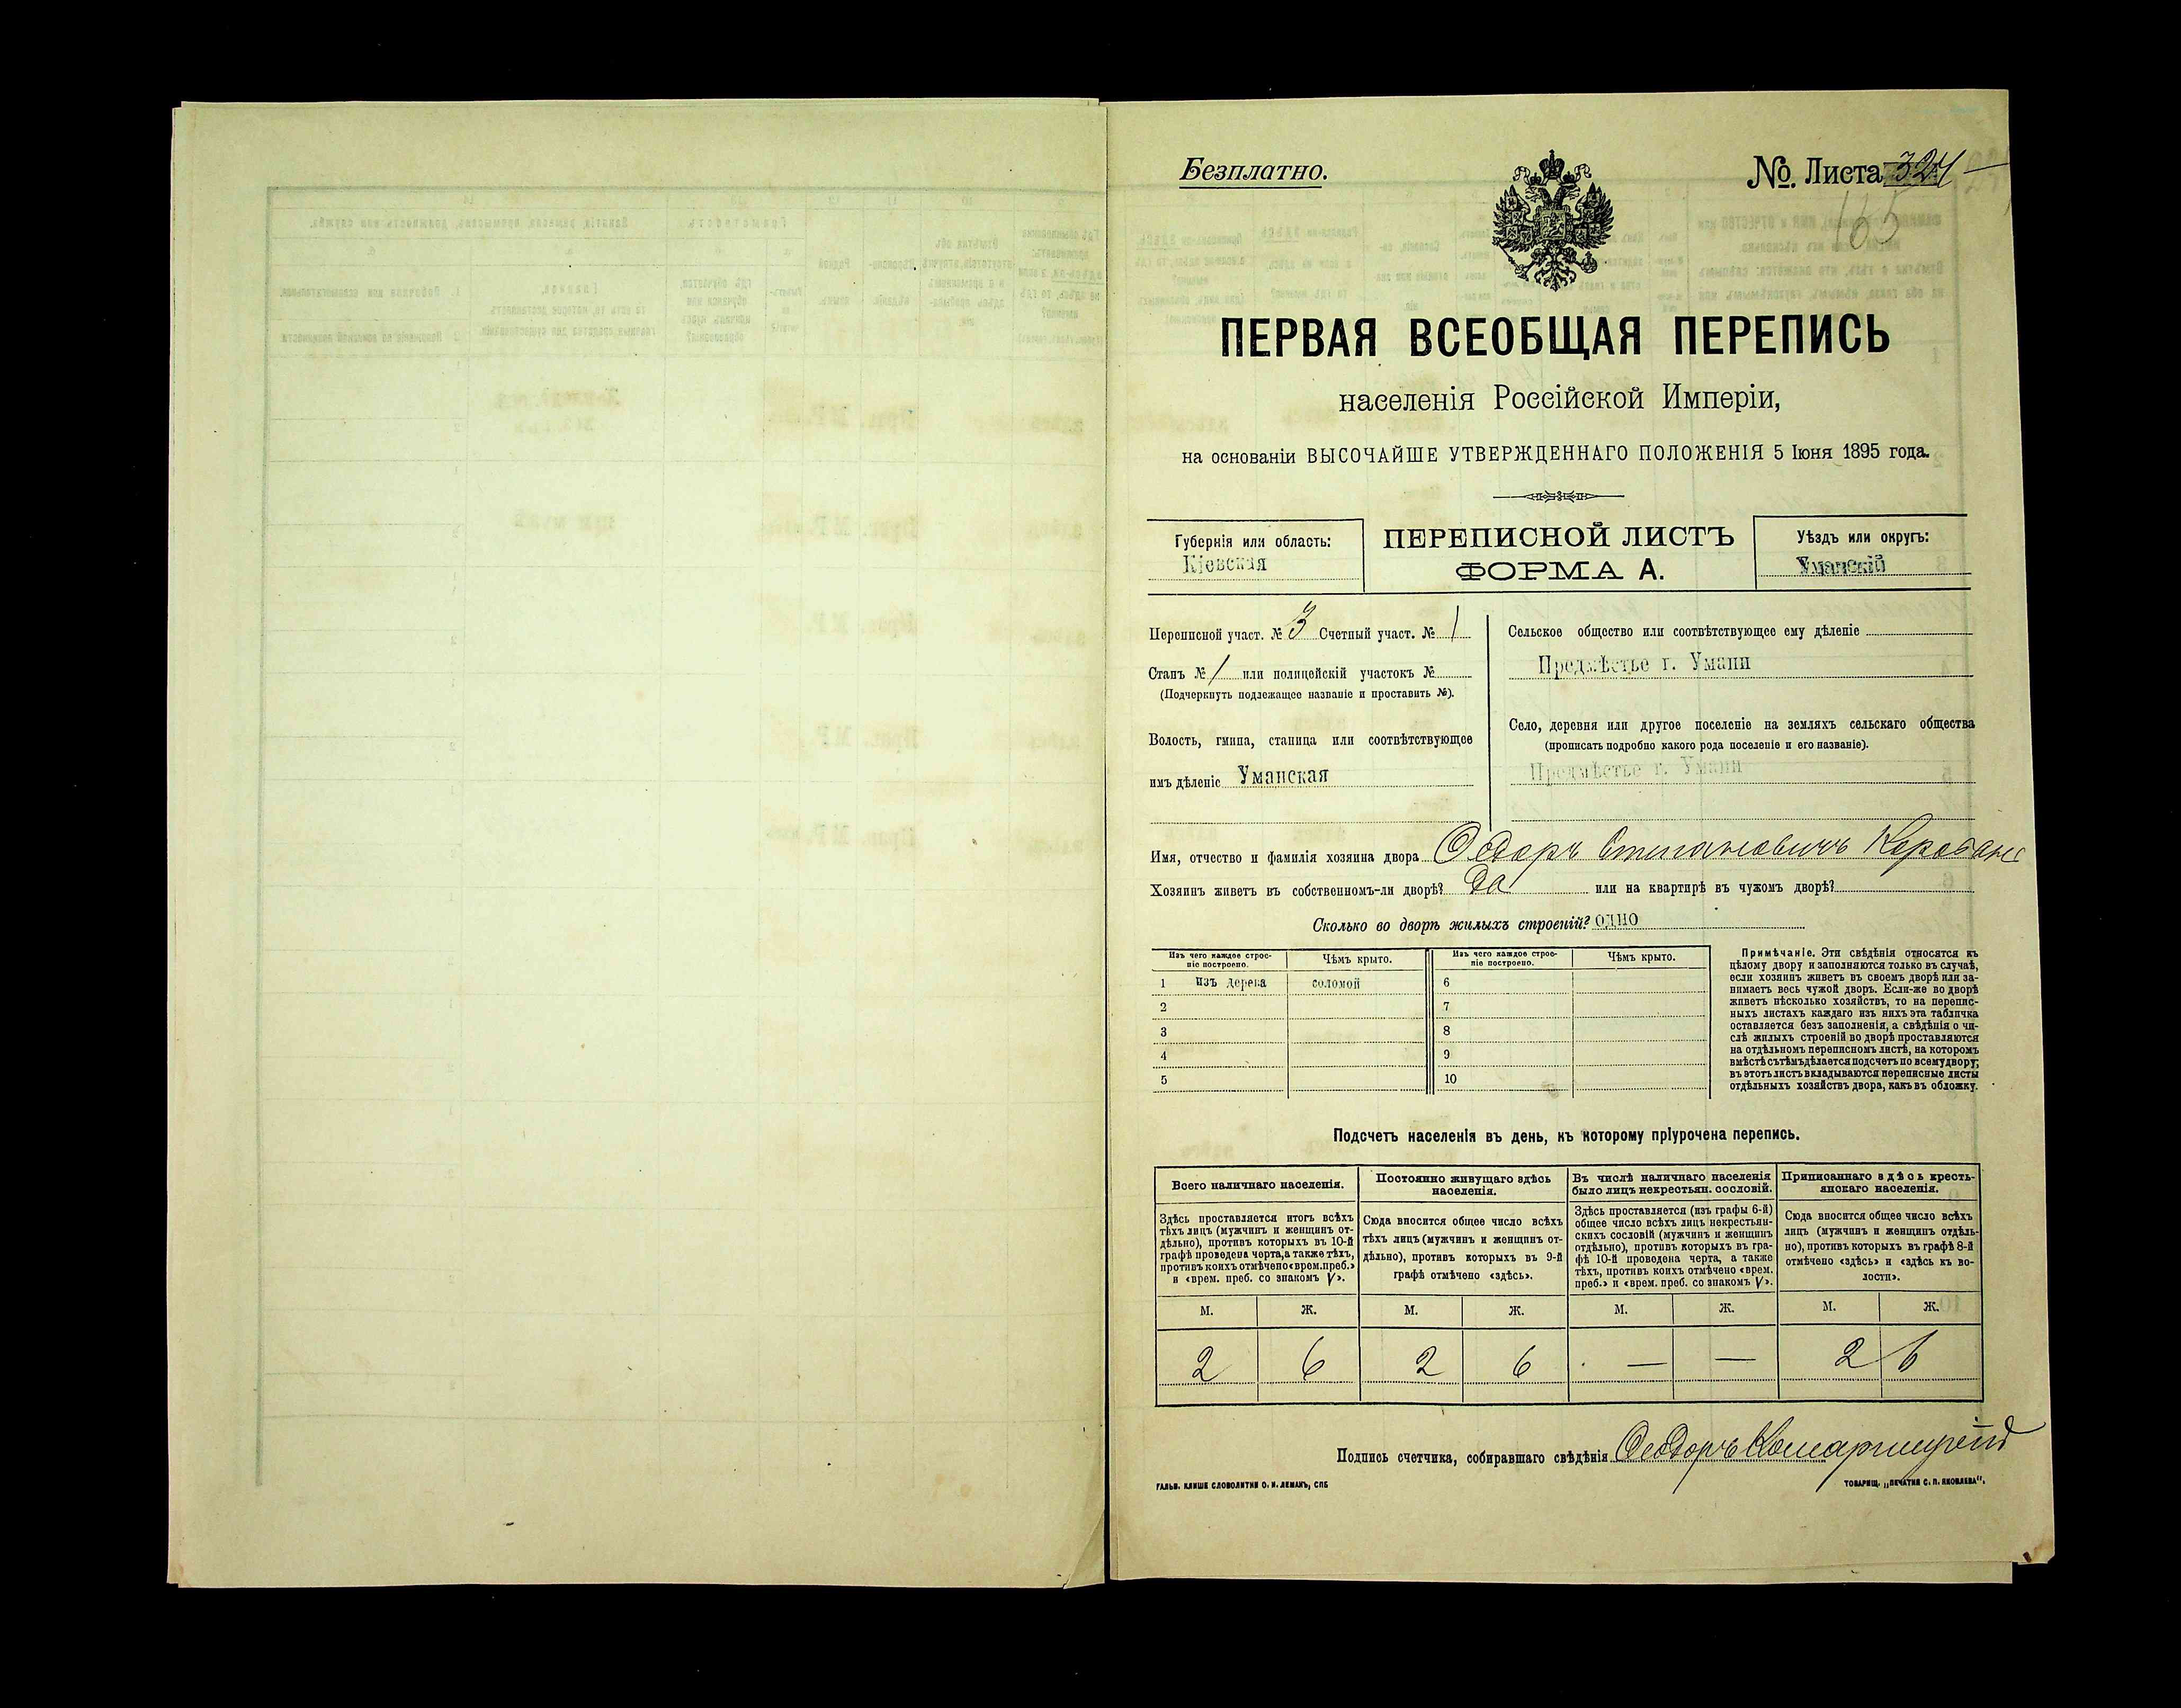 Безплатно.
№. Листа 324
165
ПЕРВАЯ ВСЕОБЩАЯ ПЕРЕПИСЬ
населенія Россійской Имперіи,
на основаніи ВЫСОЧАЙШЕ УТВЕРЖДЕННАГО ПОЛОЖЕНІЯ 5 Іюня 1895 года.
Губернія или область:
Кіевская
ПЕРЕПИСНОЙ ЛИСТЪ
ФОРМА А.
Уѣздъ или округъ:
Уманскій
Переписной участ. № 3 Счетный участ. № 1
Станъ № 1 или полицейскій участокъ №
(Подчеркнуть подлежащее названіе и проставить №).
Волость, гмина, станица или соотвѣтствующее
имъ дѣленіе Уманская
Сельское общество или соотвѣтствующее ему дѣленіе
Предмѣстье г. Умани
Село, деревня или другое поселеніе на земляхъ сельскаго общества
(прописать подробно какого рода поселеніе и его названіе).
Предмѣстье г. Умани
Имя, отчество и фамилія хозяина двора Ѳедоръ Степановичъ
Хозяинъ живетъ въ собственномъ-ли дворѣ? Да или на квартирѣ въ чужомъ дворѣ?
Сколько во дворѣ жилыхъ строеній? одно
Изъ чего каждое строеніе построено. Чѣмъ крыто. Изъ чего каждое строеніе построено. Чѣмъ крыто.
1 изъ дерева соломой 6
2 7
3 8
4 9
5 10
Примѣчаніе. Эти свѣдѣнія относятся къ
цѣлому двору и заполняются только въ случаѣ,
если хозяинъ живетъ въ своемъ дворѣ или за-
нимаетъ весь чужой дворъ. Если-же во дворѣ
живетъ нѣсколько хозяйствъ, то на перепис-
ныхъ листахъ каждаго изъ нихъ эта табличка
оставляется безъ заполненія, а свѣдѣнія о чи-
слѣ жилыхъ строеній во дворѣ проставляются
на отдѣльномъ переписномъ листѣ, на которомъ
вмѣстѣ съ тѣмъ дѣлается подсчетъ по всему двору;
въ этотъ листъ вкладываются переписные листы
отдѣльныхъ хозяйствъ двора, какъ въ обложку.
Подсчетъ населенія въ день, къ которому пріурочена перепись.
Всего наличнаго населенія.
Здѣсь проставляется итогъ всѣхъ
тѣхъ лицъ (мужчинъ и женщинъ от-
дѣльно), противъ которыхъ въ 10-й
графѣ проведена черта, а также тѣхъ,
противъ коихъ отмѣчено «врем. преб.»
и «врем. преб. со знакомъ V».
Постоянно живущаго здѣсь
населенія.
Сюда вносится общее число всѣхъ
тѣхъ лицъ (мужчинъ и женщинъ от-
дѣльно), противъ которыхъ въ 9-й
графѣ отмѣчено «здѣсь».
Въ числѣ наличнаго населенія
было лицъ некрестьян. сословій.
Здѣсь проставляется (изъ графы 6-й)
общее число всѣхъ лицъ некрестьян-
скихъ сословій (мужчинъ и женщинъ
отдѣльно), противъ которыхъ въ гра-
фѣ 10-й проведена черта, а также
тѣхъ, противъ коихъ отмѣчено «врем.
преб.» и «врем. преб. со знакомъ V».
Приписаннаго здѣсь кресть-
янскаго населенія.
Сюда вносится общее число всѣхъ
лицъ (мужчинъ и женщинъ отдѣль-
но), противъ которыхъ въ графѣ 8-й
отмѣчено «здѣсь» и «здѣсь къ во-
лости».
М. Ж. М. Ж. М. Ж. М. Ж.
2 6 2 6 — — 2 6
Подпись счетчика, собиравшаго свѣдѣнія Ѳеодоръ
ГАЛЬВ. КЛИШЕ СЛОВОЛИТНИ О. И. ЛЕМАНЪ, СПБ
ТОВАРИЩ. „ПЕЧАТНЯ С. П. ЯКОВЛЕВА".